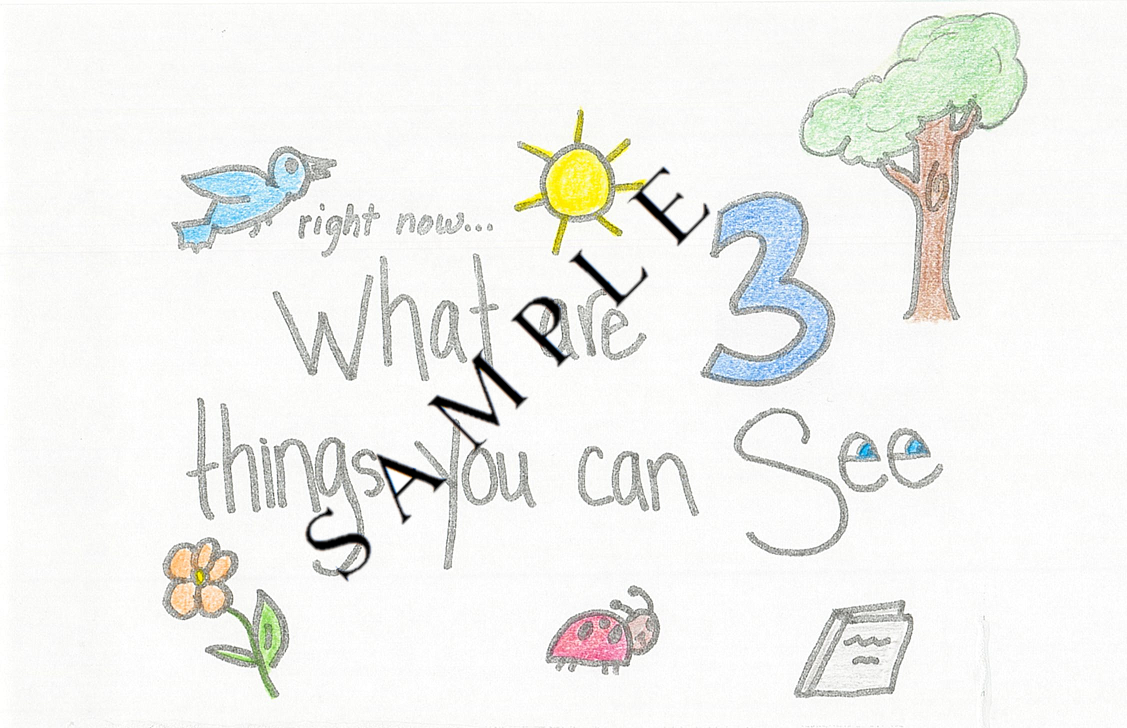 right now...
What are 3
things you can See
SAMPLE